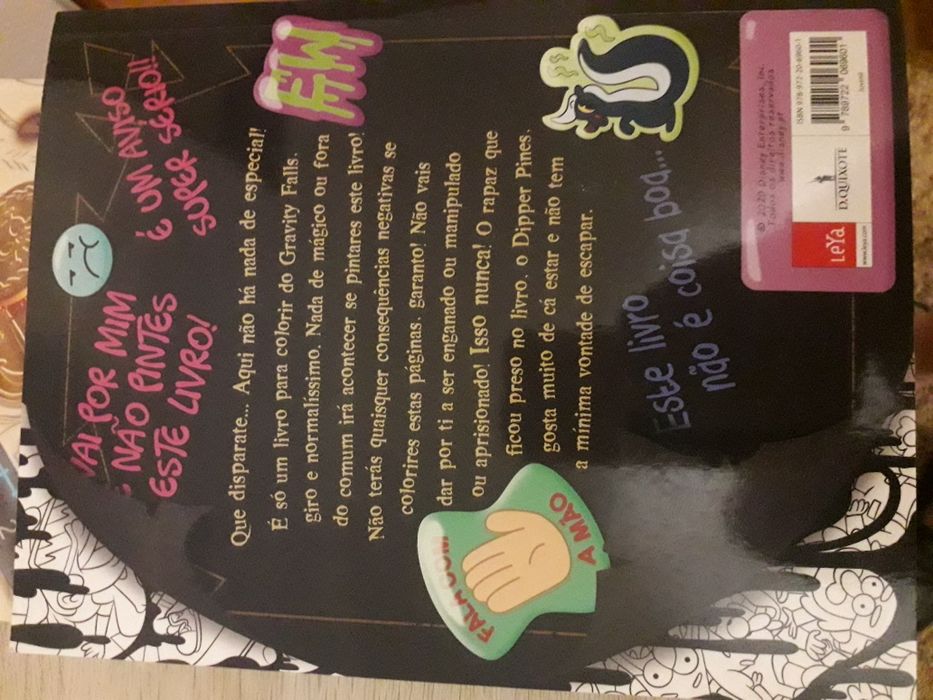 VAI POR MIM
E NÃO PINTES
ESTE LIVRO!
É UM AVISO
SUPER SÉRIO!!
EW
Que disparate... Aqui não há nada de especial!
É só um livro para colorir do Gravity Falls.
giro e normalíssimo. Nada de mágico ou fora
do comum irá acontecer se pintares este livro!
Não terás quaisquer consequências negativas se
colorires estas páginas, garanto! Não vais
dar por ti a ser enganado ou manipulado
ou aprisionado! Isso nunca! O rapaz que
ficou preso no livro, o Dipper Pines,
gosta muito de cá estar e não tem
a mínima vontade de escapar.
FALA COM
A MÃO
Este livro
não é coisa boa...
© 2020 Disney Enterprises, Inc.
Todos os direitos reservados
www.disney.pt
LeYa
www.leya.com
D.QUIXOTE
ISBN 978-972-20-6960-1
9 789722 069601
Juvenil